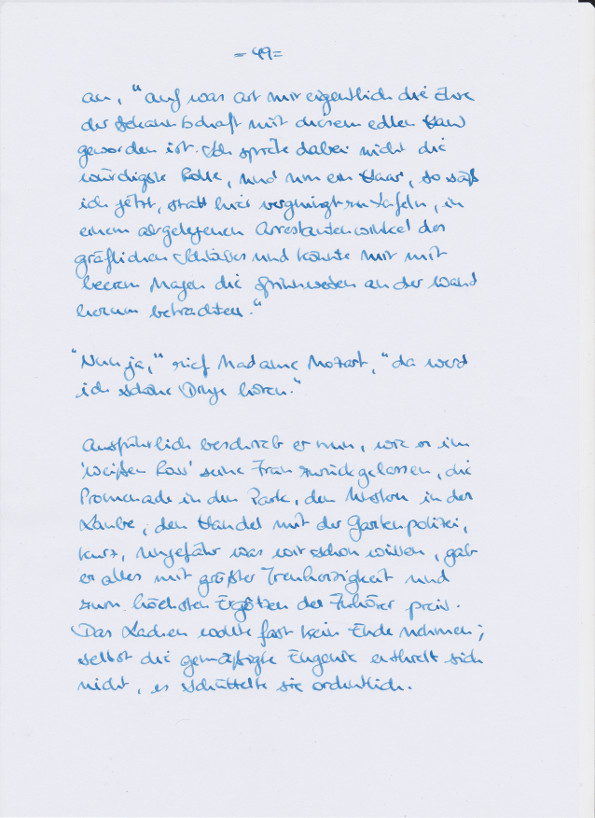 = 49 =
an, "auf was art mir eigentlich die Ehre
der Bekanntschaft mit diesem edlen Haus
geworden ist. Ich spiele dabei nicht die
würdigste Rolle, und um ein Haar, so säß
ich jetzt, statt hier vergnügt zu tafeln, in
einem abgelegenen Arrestantenwinkel des
gräflichen Schlosses und könnte mir mit
leerem Magen die Spinnweben an der Wand
herum betrachten."
"Nun ja," rief Madame Mozart, "da werd
ich schöne Dinge hören."
Ausführlich beschrieb er nun, wie er im
'weißen Ross' seine Frau zurückgelassen, die
Promenade in den Park, den Unstern in der
Laube, den Handel mit der Gartenpolizei,
kurz, ungefähr was wir schon wissen, gab
er alles mit größter Treuherzigkeit und
zum höchsten Ergötzen der Zuhörer preis.
Das Lachen wollte fast kein Ende nehmen;
selbst die gemäßigte Eugenie enthielt sich
nicht, es schüttelte sie ordentlich.